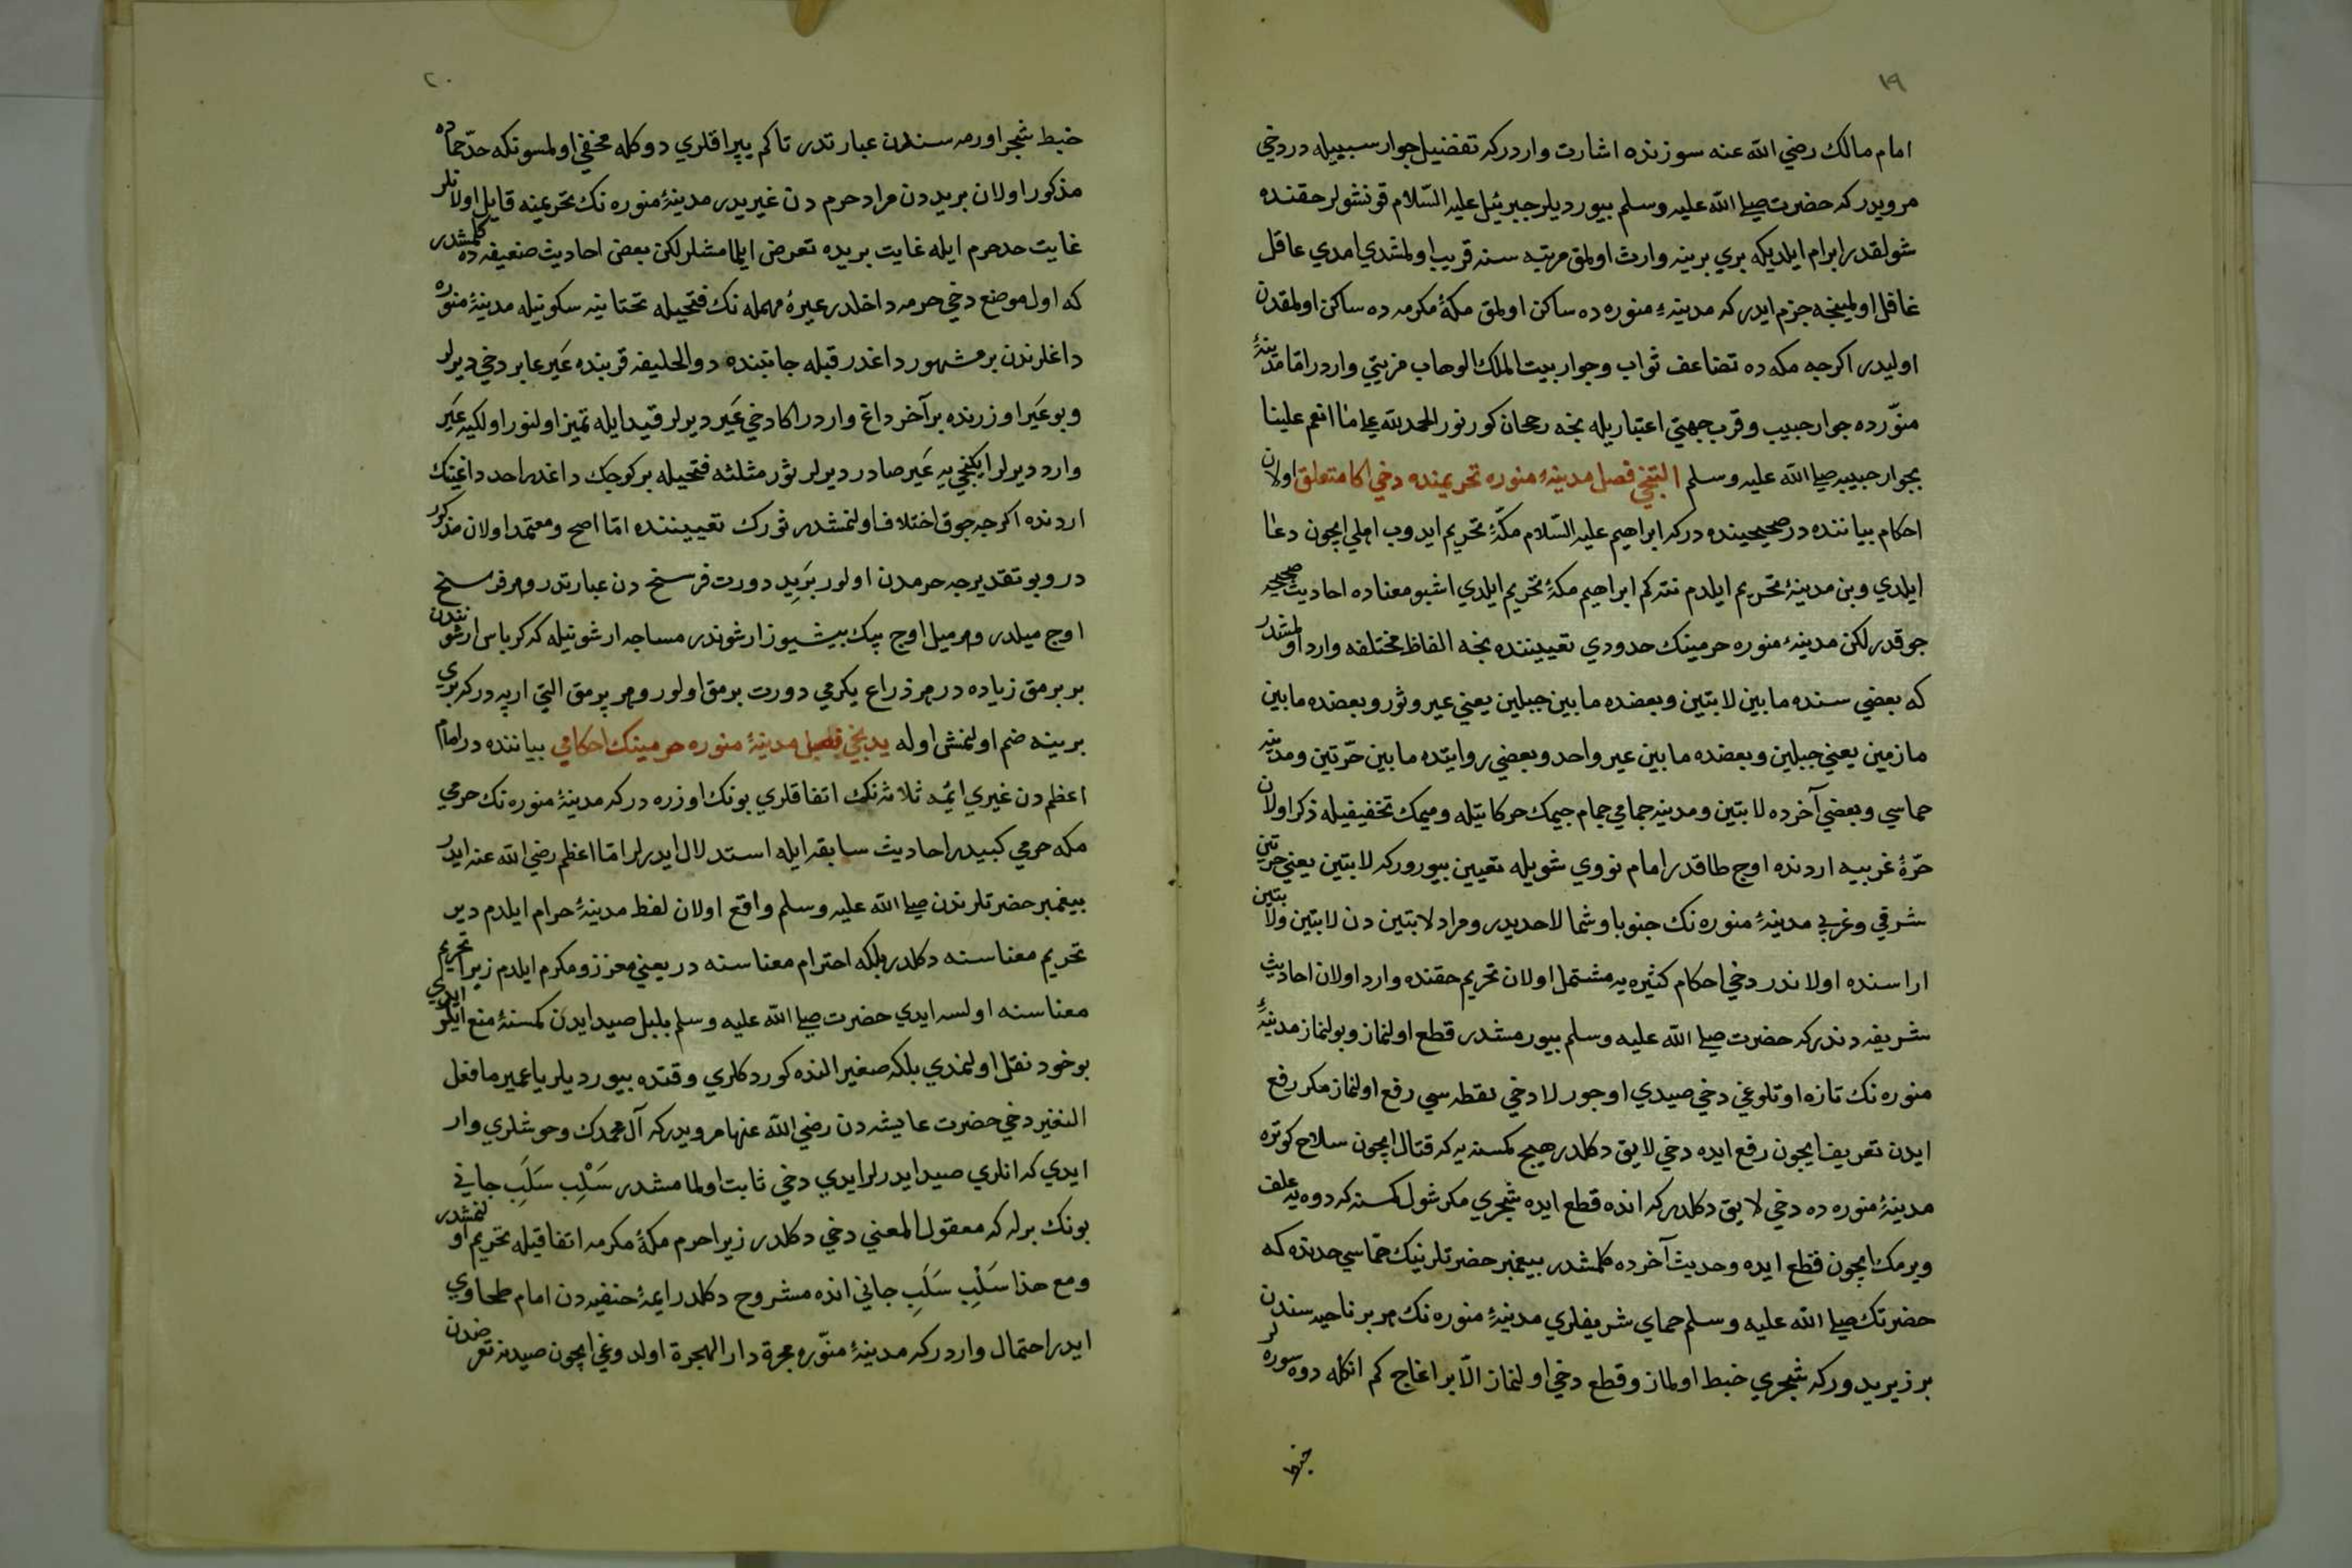 ١٩
امام مالك رضي الله عنه سوزنده اشارت واردركه تفضيل جوار سببيله در دخي
مرويدركه حضرت صلى الله عليه وسلم بيورديلر جبرئيل عليه السّلام قونشولر حقنده
شولقدر ابرام ايلديكه بري برينه وارث اولمق مرتبه سنه قريب اولمشدي امدي عاقل
غافل اولمينجه جزم ايدر كه مدينهٔ منوره ده ساكن اولمق مكهٔ مكرمه ده ساكن اولمقدن
اوليدر اكرجه مكه ده تضاعف ثواب وجوار بيت الملك الوهاب مزيتي واردر امّا مدينهٔ
منوّرده جوار حبيب وقرب جهتي اعتباريله نجه رجحان كورنور الحمد لله على ما انعم علينا
بجوار حبيبه صلى الله عليه وسلم التنجي فصل مدينهٔ منوره تحريمنده دخي اكا متعلق اولان
احكام بياننده در صحيحينده دركه ابراهيم عليه السّلام مكّهٔ تحريم ايدوب اهلي ايچون دعا
ايلدي وبن مدينهٔ تحريم ايلدم نته كم ابراهيم مكهٔ تحريم ايلدي اشبو معناده احاديث صحيحه
جوقدر لكن مدينهٔ منوره حرمينك حدودي تعييننده نجه الفاظ مختلفه وارد اولمشدر
كه بعضي سنده ما بين لابتين وبعضده ما بين جبلين يعني عير وثور وبعضده ما بين
مازمين يعني جبلين وبعضده ما بين عير واحد وبعضي روايتده ما بين حرّتين ومدينه
حماسي وبعضي آخرده لابتين ومدينه جمامي جمام جيمك حركاتيله وميمك تخفيفيله ذكر اولان
حرّهٔ غربيه اردنده اوج طاقدر امام نووي شويله تعيين بيوروركه لابتين يعني حرتين
شرقي وغربي مدينهٔ منوره نك جنوبا وشمالا حديدر ومراد لابتين دن لابتين ولابتين
اراسنده اولاندر دخي احكام كثيره يه مشتمل اولان تحريم حقنده وارد اولان احاديث
شريفه دندركه حضرت صلى الله عليه وسلم بيورمشدر قطع اولنماز وبولنماز مدينهٔ
منوره نك تازه اوتلوغي دخي صيدي اوجورلا دخي لقطه سي رفع اولنماز مكر رفع
ايدن تعريف ايچون رفع ايده دخي لايق دكلدر هيچ كمسنه يه كه قتال ايچون سلاح كوتره
مدينهٔ منوره ده دخي لايق دكلدركه انده قطع ايده شجري مكر شول كمسنه كه دوه يه علف
ويرمك ايچون قطع ايده وحديث آخرده كلمشدر پيغمبر حضرتلرينك حمّاسي حدنده كه
حضرتك صلى الله عليه وسلم حماي شريفلري مدينهٔ منوره نك هر بر ناحيه سندن
بر زيريدوركه شجري خبط اولماز وقطع دخي اولنماز الّا بر اغاج كم انكله دوه سوره لر
خبط
٢٠
خبط شجر اورمه سندن عبارتدر تاكم يپراقلري دوكله مخفي اولمسونكه حدّ حماده
مذكور اولان بريد دن مراد حرم دن غيريدر مدينهٔ منوره نك تحريمينه قايل اولانلر
غايت حد حرم ايله غايت بريده تعرض ايلمامشلر لكن بعض احاديث ضعيفه ده كلمشدر
كه اول موضع دخي حرمه داخلدر عيرهٔ مهمله نك فتحيله تحتانيه سكونيله مدينهٔ منوره
داغلرندن بر مشهور داغدر قبله جانبنده ذوالحليفه قربنده عَير عاير دخي ديرلر
وبو عَير اوزرنده بر آخر داغ واردر اكا دخي عَير ديرلر قيد ايله تميز اولنور اولكيه عَير
وارد ديرلر ايكنجي يه عَير صادر ديرلر ثور مثلثه فتحيله بر كوجك داغدر احد داغينك
اردنده اكرجه جوق اختلاف اولنمشدر ثورك تعييننده امّا اصح ومعتمد اولان مذكور
در وبو تقديرجه حرمدن اولور بَرِيد دورت فرسخ دن عبارتدر وهر فرسخ
اوج ميلدر وهر ميل اوج بيك بيشيوز ارشوندر مساجه ارشونيله كه كرباس ارشوندن
بر برمق زياده در هر ذراع يكرمي دورت برمق اولور وهر پرمق التي ارپه دركه بري
برينه ضم اولنمش اوله يدنجي فصل مدينهٔ منوره حرمينك احكامي بياننده در امام
اعظم دن غيري ائمه ثلاثه نك اتفاقلري بونك اوزره دركه مدينهٔ منوره نك حرمي
مكه حرمي كبيدر احاديث سابقه ايله استدلال ايدرلر امّا اعظم رضي الله عنه ايدر
پيغمبر حضرتلرندن صلى الله عليه وسلم واقع اولان لفظ مدينهٔ حرام ايلدم دير
تحريم معناسنه دكلدر بلكه احترام معناسنه در يعني معزز ومكرم ايلدم زيرا تحريم
معناسنه اولسه ايدي حضرت صلى الله عليه وسلم بلبل صيد ايدن كمسنهٔ منع ايلر ايدي
بو خود نقل اولنمدي بلكه صغير النده كوردكلري وقتده بيورديلر يا عمير ما فعل
النغير دخي حضرت عايشه دن رضي الله عنها مرويدركه آل محمدك وحوشلري وار
ايدي كه انلري صيد ايدرلر ايدي دخي ثابت اولمامشدر سَلْبِ سَلَبِ جاني
بونك برله كه معقول المعني دخي دكلدر زيرا حرم مكهٔ مكرمه اتفاقيله تحريم اولنمشدر
ومع هذا سَلْبِ سَلَبِ جاني انده مشروح دكلدر ايمهٔ حنفيه دن امام طحاوي
ايدر احتمال واردركه مدينهٔ منوّره هجرة دار الهجرة اولدوغي ايچون صيدنه تعرضدن